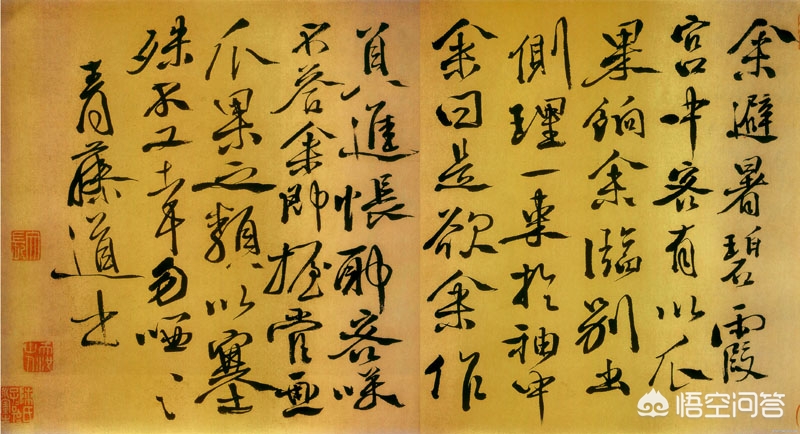 余避暑碧霞
宫中客有以瓜
果餉余臨别出
側理一束於袖中
余曰是欲余作
進帳耶客咲
不答余即握管画
瓜果之類以塞
殊不工
青藤道士
悟空问答